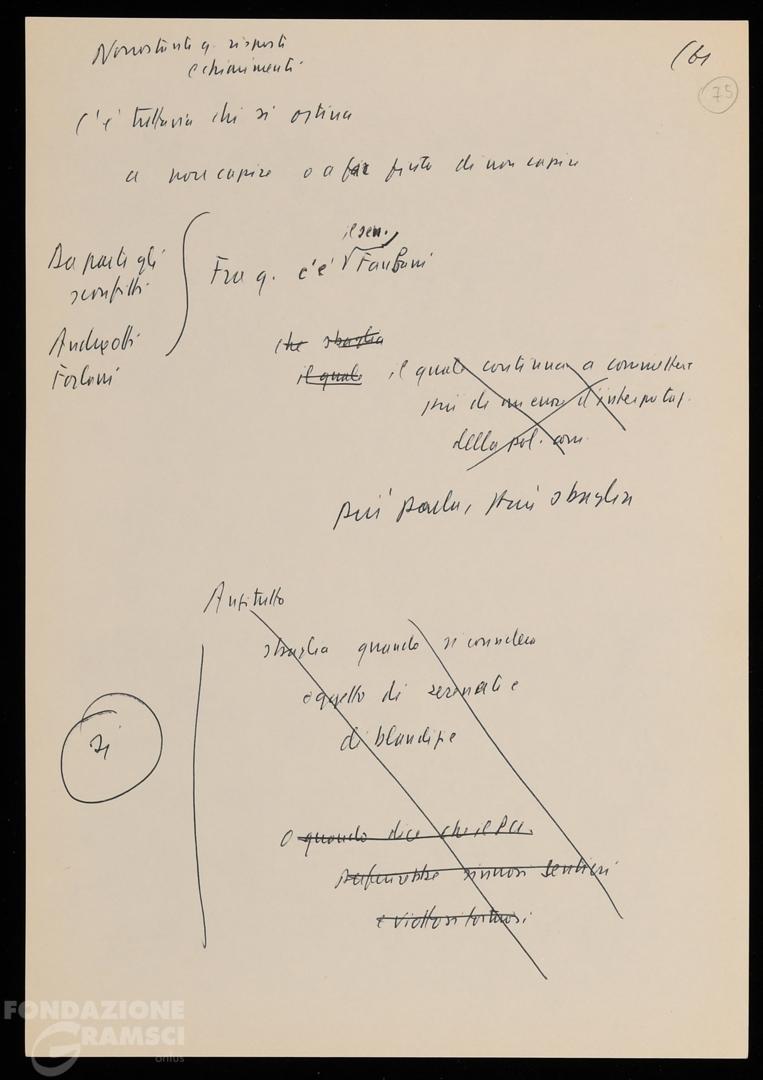 Nonostante q. risposte
e chiarimenti
(61
75
C'è tuttavia chi si ostina
a non capire o a far finta di non capire
Da parte gli
sconfitti
Andreotti
Forlani
il sen.
Fra q. c'è √ Fanfani
che sbaglia
il quale il quale continua a commettere
più di un errore d'interpretaz.
della pol. com.
più parla, più sbaglia
Anzitutto
sbaglia quando si considera
oggetto di serenate e
di blandizie
sì
o quando dice che il PCI
preferirebbe sinuosi sentieri
e viottosi tortuosi
FONDAZIONE
GRAMSCI
onlus